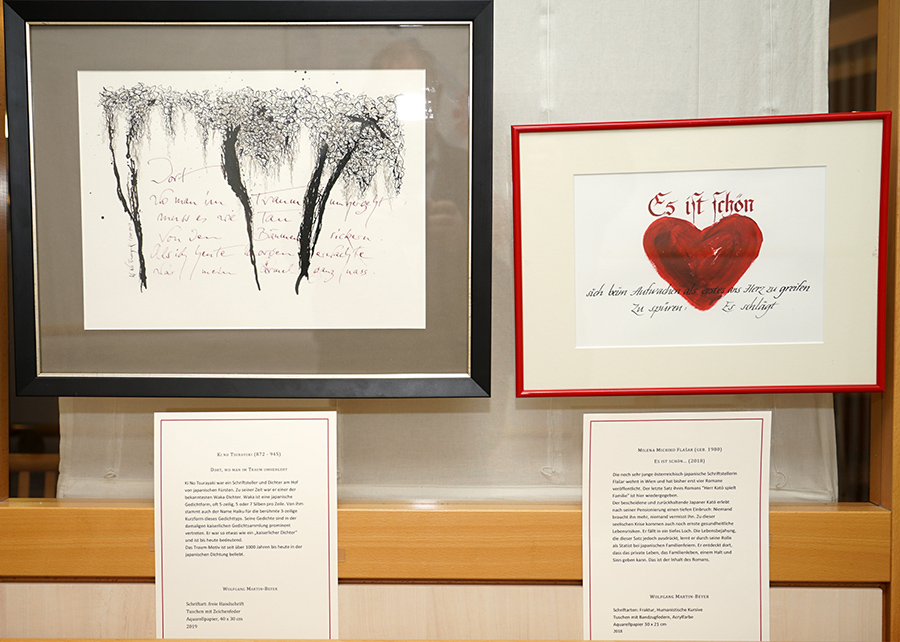 Dort
Wo man im Traum umhergeht
muss es viel Tau
Von den Bäumen sickern...
Als ich heute Morgen erwachte
war mein Ärmel ganz nass.
Es iſt ſchön
sich beim Aufwachen als erstes ans Herz zu greifen
Zu spüren: Es schlägt
KI NO TSURAYUKI (872 - 945)
DORT, WO MAN IM TRAUM UMHERGEHT
Ki No Tsurayaki war ein Schriftsteller und Dichter am Hof
von japanischen Fürsten. Zu seiner Zeit war er einer der
bekanntesten Waka Dichter. Waka ist eine japanische
Gedichtform, oft 5-zeilig, 5 oder 7 Silben pro Zeile. Von ihm
stammt auch der Name Haiku für die berühmte 3-zeilige
Kurzform dieses Gedichttyps. Seine Gedichte sind in der
damaligen kaiserlichen Gedichtsammlung prominent
vertreten. Er war so etwas wie ein „kaiserlicher Dichter"
und ist bis heute bedeutend.
Das Traum-Motiv ist seit über 1000 Jahren bis heute in der
japanischen Dichtung beliebt.
WOLFGANG MARTIN-BEYER
Schriftart: freie Handschrift
Tuschen mit Zeichenfeder
Aquarellpapier, 40 x 30 cm
2019
MILENA MICHIKO FLAŠAR (GEB. 1980)
ES IST SCHÖN... (2018)
Die noch sehr junge österreichisch-japanische Schriftstellerin
Flašar wohnt in Wien und hat bisher erst vier Romane
veröffentlicht. Der letzte Satz ihres Romans "Herr Katō spielt
Familie" ist hier wiedergegeben.
Der bescheidene und zurückhaltende Japaner Katō erlebt
nach seiner Pensionierung einen tiefen Einbruch: Niemand
braucht ihn mehr, niemand vermisst ihn. Zu dieser
seelischen Krise kommen auch noch ernste gesundheitliche
Lebensrisiken. Er fällt in ein tiefes Loch. Die Lebensbejahung,
die dieser Satz jedoch ausdrückt, lernt er durch seine Rolle
als Statist bei japanischen Familienfeiern. Er entdeckt dort,
dass das private Leben, das Familienleben, einem Halt und
Sinn geben kann. Das ist der Inhalt des Romans.
WOLFGANG MARTIN-BEYER
Schriftarten: Fraktur, Humanistische Kursive
Tuschen mit Bandzugfedern, Acrylfarbe
Aquarellpapier 30 x 21 cm
2018